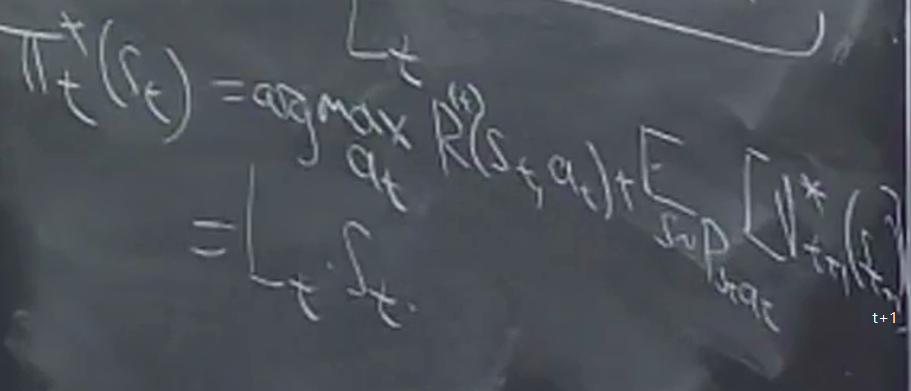 L_t
π_t^*(s_t) = argmax_{a_t} R^{(t)}(s_t, a_t) + E_{s~P_{s_t a_t}} [V^*_{t+1}(s_{t+1})
= L_t · s_t.
t+1